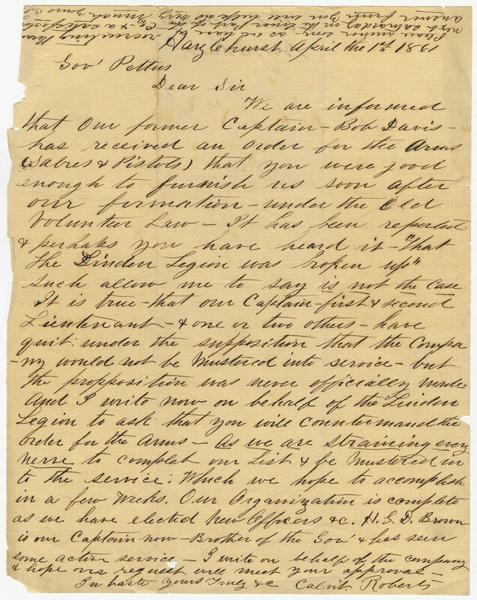 Hazlehurst April the 1st 1861
Gov' Pettus
Dear Sir
We are informed
that Our former Captain - Bob Davis -
has received an Order for the Arms
(Sabres & Pistols) that you were good
enough to furnish us soon after
our formation - under the Old
Volunteer Law - It has been reported
& perhaps you have heard it - "That
the Linden Legion was broken up"
Such allow me to say is not the case
It is true - that our Captain - first & second
Lieutenant - & one or two others - have
quit: under the supposition that the Compa
ny would not be Mustered into service - but
the proposition was never officially made
And I write now on behalf of the Linden
Legion to ask that you will countermand the
order for the Arms - as we are straining every
nerve to complet our List & be Mustered in
to the service: Which we hope to accomplish
in a few Weeks. Our Organization is complete
as we have elected New Officers & c. H. S. D. Brown
is our Captain now - Brother of the Gov' & has seen
some active service - I write on behalf of the company
& hope our request will meet your approval -
In haste Yours Truly & c Calvit Roberts
Please answer